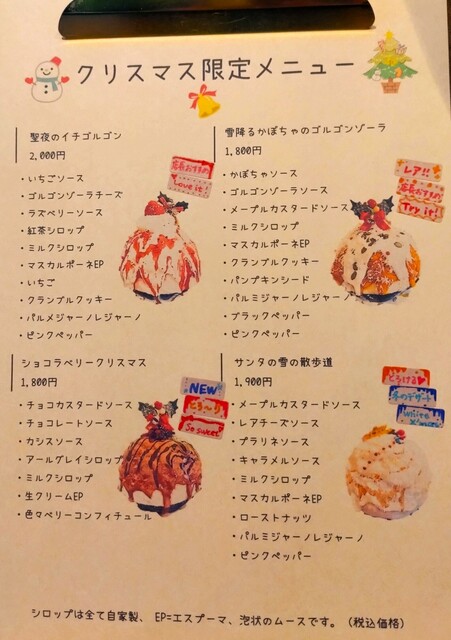 クリスマス限定メニュー
聖夜のイチゴルゴン
2,000円
・いちごソース
・ゴルゴンゾーラチーズ
・ラズベリーソース
・紅茶シロップ
・ミルクシロップ
・マスカルポーネEP
・いちご
・クランブルクッキー
・パルメジャーノレジャーノ
・ピンクペッパー
店長おすすめ
Love it!
雪降るかぼちゃのゴルゴンゾーラ
1,800円
・かぼちゃソース
・ゴルゴンゾーラソース
・メープルカスタードソース
・ミルクシロップ
・マスカルポーネEP
・クランブルクッキー
・パンプキンシード
・パルミジャーノレジャーノ
・ブラックペッパー
・ピンクペッパー
レア!!
店長おすすめ
Try it!
ショコラベリークリスマス
1,800円
・チョコカスタードソース
・チョコレートソース
・カシスソース
・アールグレイシロップ
・ミルクシロップ
・生クリームEP
・色々ベリーコンフィチュール
NEW
とろ〜り
So sweet
サンタの雪の散歩道
1,900円
・メープルカスタードソース
・レアチーズソース
・プラリネソース
・キャラメルソース
・ミルクシロップ
・マスカルポーネEP
・ローストナッツ
・パルミジャーノレジャーノ
・ピンクペッパー
とろける
冬のデザート
White X'mas
シロップは全て自家製、EP=エスプーマ、泡状のムースです。(税込価格)